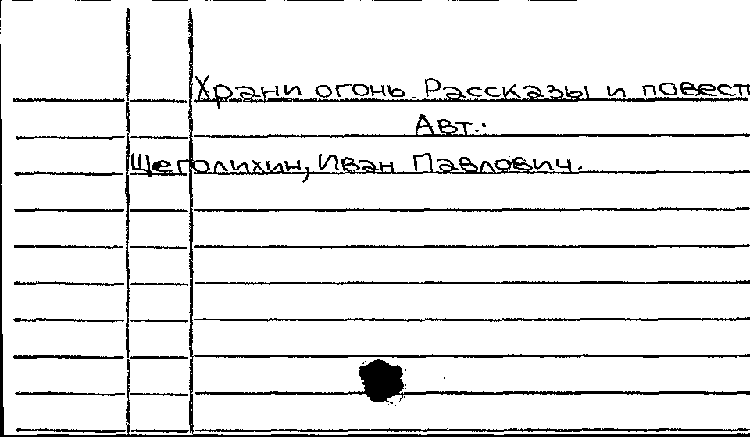 Храни огонь. Рассказы и повест
Авт.:
Щеголихин, Иван Павлович.